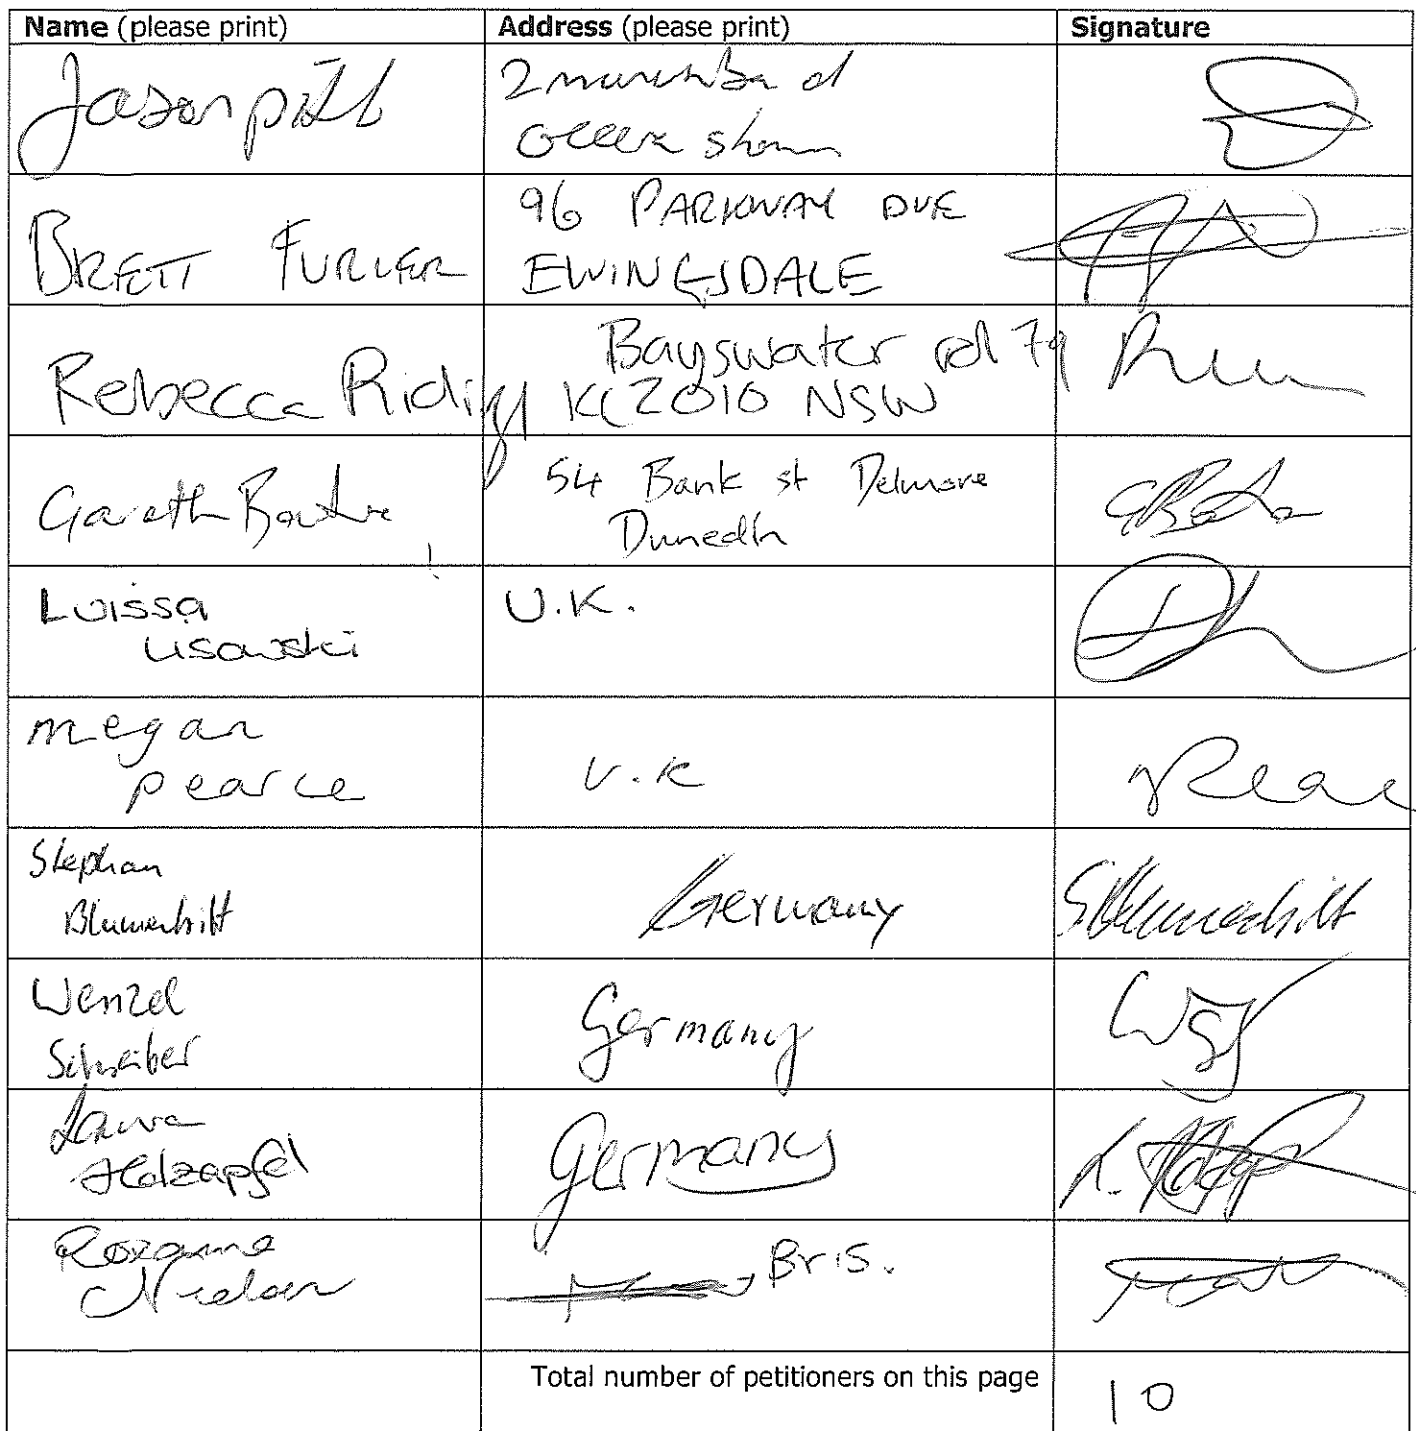 Name (please print) Address (please print) Signature
Jason pitt
2
ocean shores
BRETT FURLER
96 PARKWAY DVE
EWINGSDALE
Rebecca Riding
Bayswater rd 79
KC 2010 NSW
Gareth
54 Bank st Delmore
Dunedin
Luissa
Lisowski
U.K.
megan
pearce
U.K
Stephan
Blumentritt
Germany
SBlumentritt
Wenzel
Schreiber
Germany
Laura
Holzapfel
Germany
Rozanne
Nielsen
Bris.
Total number of petitioners on this page
10